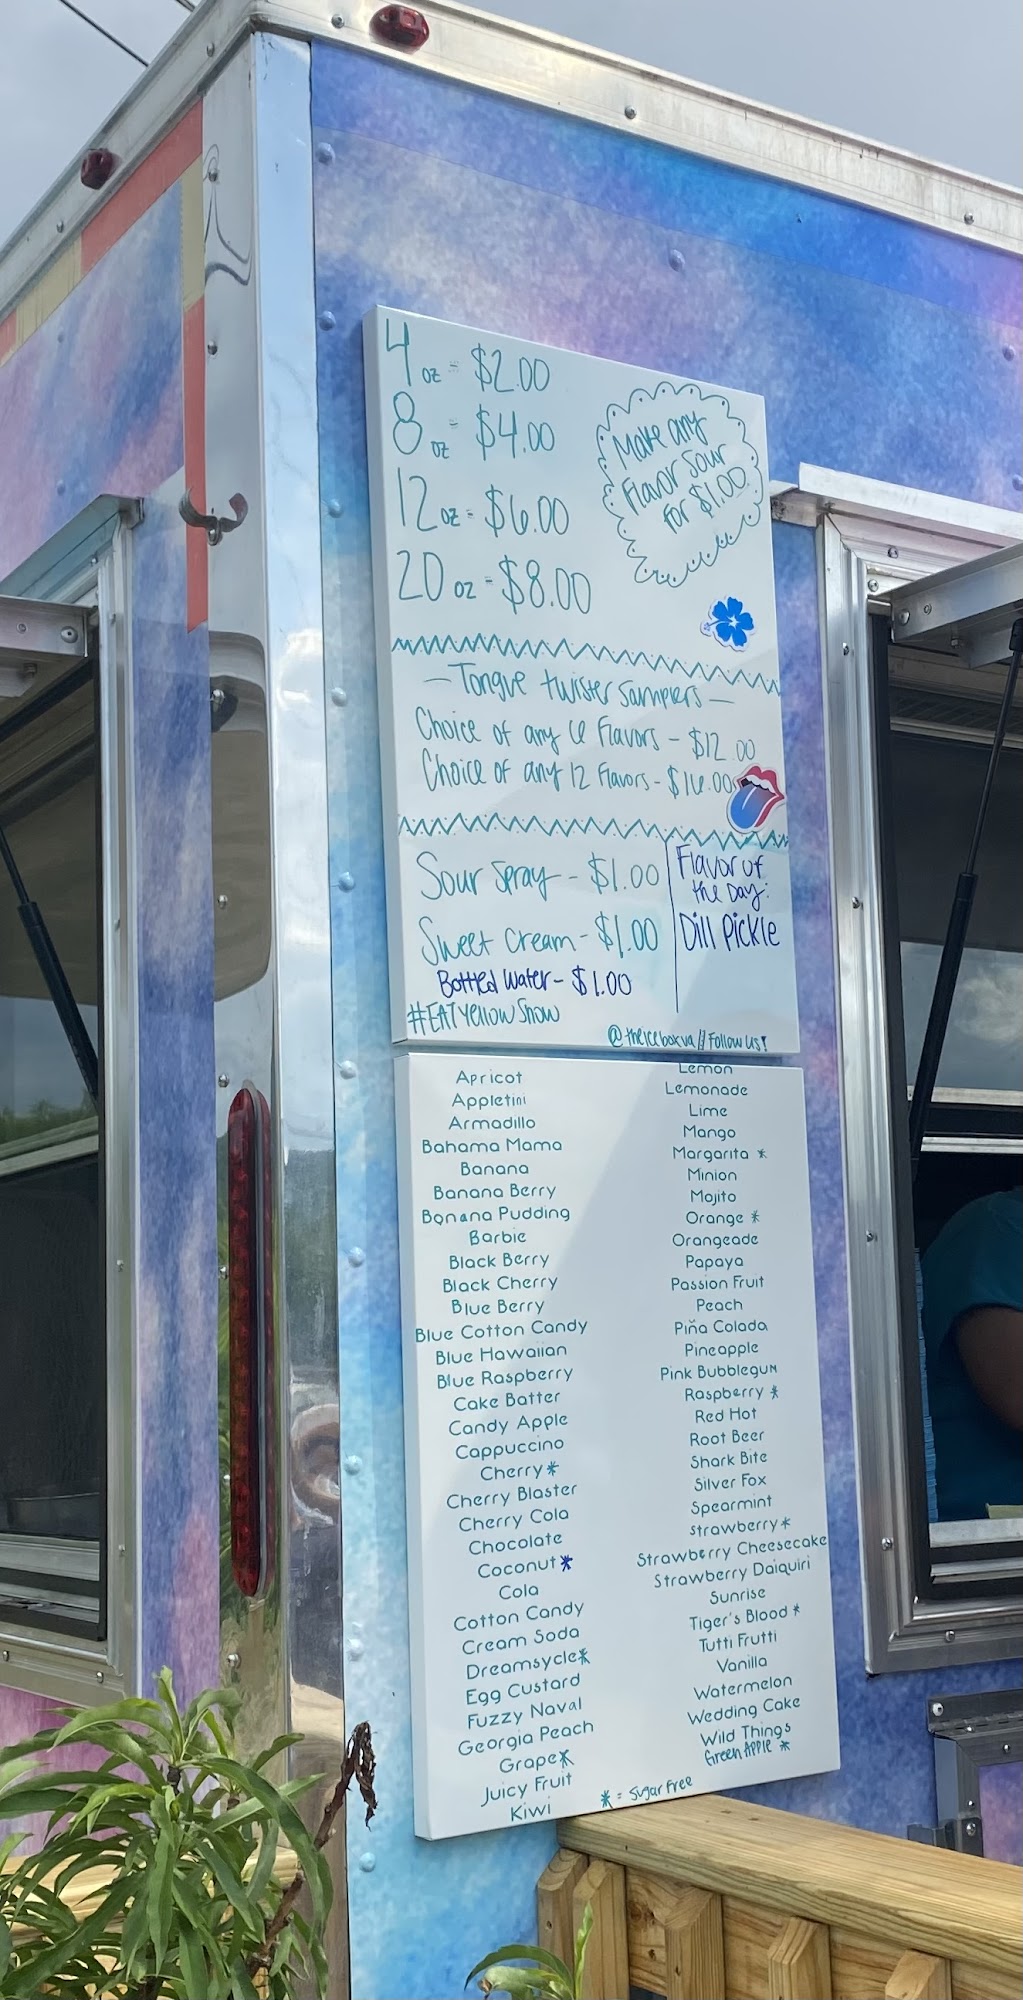 4 oz = $2.00
8 oz = $4.00
12 oz = $6.00
20 oz = $8.00
Make any
Flavor Sour
For $1.00
- Tongue twister Samplers -
Choice of any 6 Flavors - $12.00
Choice of any 12 Flavors - $16.00
Sour Spray - $1.00
Sweet Cream - $1.00
Bottled Water - $1.00
#EATYellowSnow
Flavor of
the Day:
Dill Pickle
@theiceboxva // Follow us!
Apricot
Appletini
Armadillo
Bahama Mama
Banana
Banana Berry
Banana Pudding
Barbie
Black Berry
Black Cherry
Blue Berry
Blue Cotton Candy
Blue Hawaiian
Blue Raspberry
Cake Batter
Candy Apple
Cappuccino
Cherry *
Cherry Blaster
Cherry Cola
Chocolate
Coconut *
Cola
Cotton Candy
Cream Soda
Dreamsycle *
Egg Custard
Fuzzy Naval
Georgia Peach
Grape *
Juicy Fruit
Kiwi
Lemon
Lemonade
Lime
Mango
Margarita *
Minion
Mojito
Orange *
Orangeade
Papaya
Passion Fruit
Peach
Piña Colada
Pineapple
Pink Bubblegum
Raspberry *
Red Hot
Root Beer
Shark Bite
Silver Fox
Spearmint
Strawberry *
Strawberry Cheesecake
Strawberry Daiquiri
Sunrise
Tiger's Blood *
Tutti Frutti
Vanilla
Watermelon
Wedding Cake
Wild Things
Green Apple *
* = Sugar Free